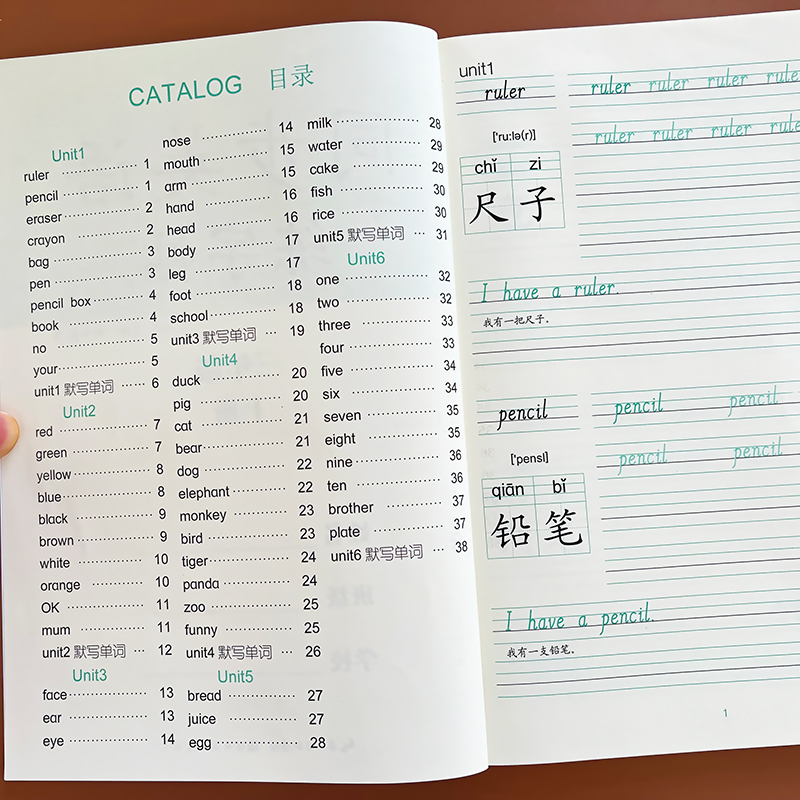 CATALOG 目录
Unit1
ruler 1
pencil 1
eraser 2
crayon 2
bag 3
pen 3
pencil box 4
book 4
no 5
your 5
unit1 默写单词 6
Unit2
red 7
green 7
yellow 8
blue 8
black 9
brown 9
white 10
orange 10
OK 11
mum 11
unit2 默写单词 12
Unit3
face 13
ear 13
eye 14
nose 14
mouth 15
arm 15
hand 16
head 16
body 17
leg 17
foot 18
school 18
unit3 默写单词 19
Unit4
duck 20
pig 20
cat 21
bear 21
dog 22
elephant 22
monkey 23
bird 23
tiger 24
panda 24
zoo 25
funny 25
unit4 默写单词 26
Unit5
bread 27
juice 27
egg 28
milk 28
water 29
cake 29
fish 30
rice 30
unit5 默写单词 31
Unit6
one 32
two 32
three 33
four 33
five 34
six 34
seven 35
eight 35
nine 36
ten 36
brother 37
plate 37
unit6 默写单词 38
unit1
ruler ruler ruler ruler ruler
['ru:lə(r)] ruler ruler ruler ruler
chǐ zi
尺子
I have a ruler.
我有一把尺子。
pencil pencil pencil
['pensl] pencil pencil
qiān bǐ
铅笔
I have a pencil.
我有一支铅笔。
1